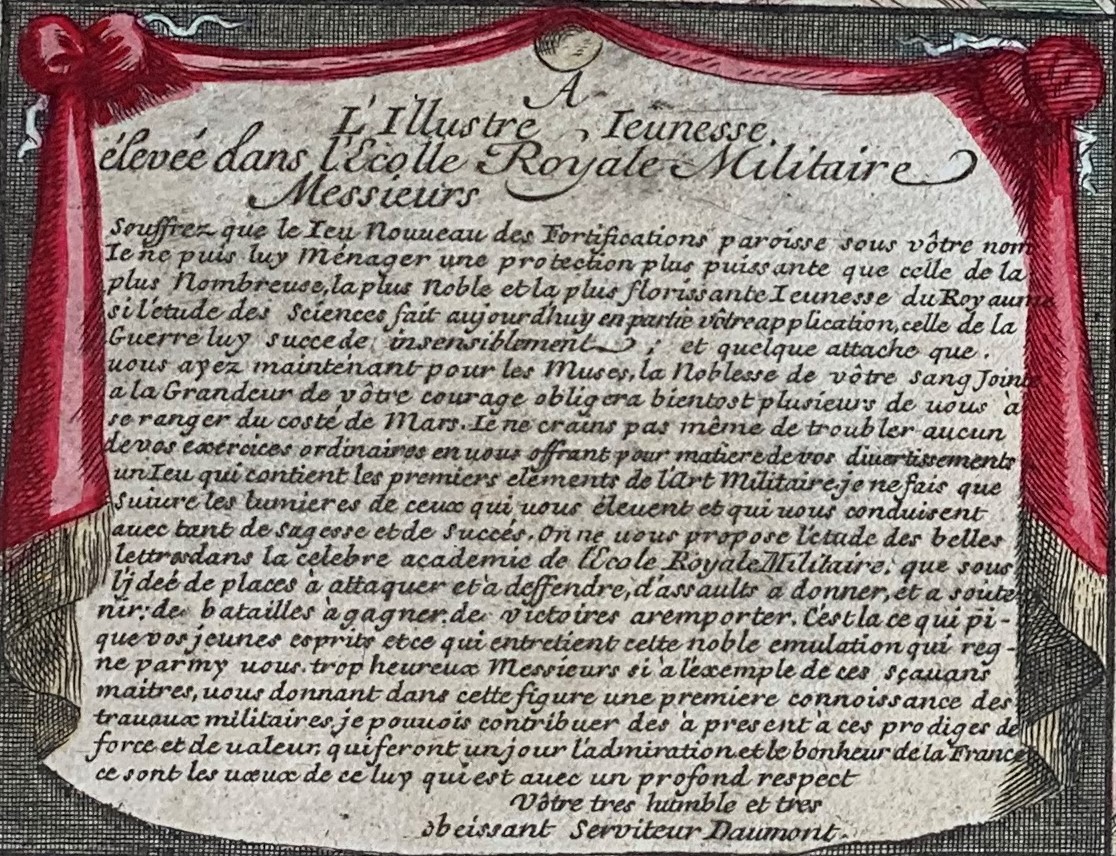 A
L'Illustre Ieunesse
élevée dans l'Ecolle Royale Militaire
Messieurs
Souffrez que le Ieu Nouueau des Fortifications paroisse sous vôtre nom
Ie ne puis luy Ménager une protection plus puissante que celle de la
plus Nombreuse, la plus Noble et la plus florissante Ieunesse du Royaume
si l'étude des Sciences fait aujourdhuy en partie vôtre application, celle de la
Guerre luy succede insensiblement ; et quelque attache que
uous ayez maintenant pour les Muses, la Noblesse de vôtre sang Joint
a la Grandeur de vôtre courage obligera bientost plusieurs de uous à
se ranger du costé de Mars. Ie ne crains pas même de troubler aucun
de vos exercices ordinaires en uous offrant pour matiere de vos diuertissements
un Ieu qui contient les premiers elements de l'Art Militaire. je ne fais que
Suiure les lumieres de ceux qui uous éleuent et qui uous conduisent
auec tant de Sagesse et de Succés. On ne uous propose l'etude des belles
lettres dans la celebre academie de l'Ecole Royale Militaire. que sous
l'jdeé de places à attaquer et à deffendre, d'assaults a donner, et a soute
nir: de batailles a gagner, de victoires a remporter. C'est la ce qui pi-
que vos jeunes esprits et ce qui entretient cette noble emulation qui reg-
ne parmy uous. trop heureux Messieurs si a l'exemple de ces sçauans
maitres, uous donnant dans cette figure une premiere connoissance des
trauaux militaires, je pouuois contribuer des à present à ces prodiges de
force et de ualeur, qui feront un jour l'admiration et le bonheur de la France
ce sont les uœux de ce luy qui est auec un profond respect
Vôtre tres humble et tres
obeissant Serviteur Daumont.